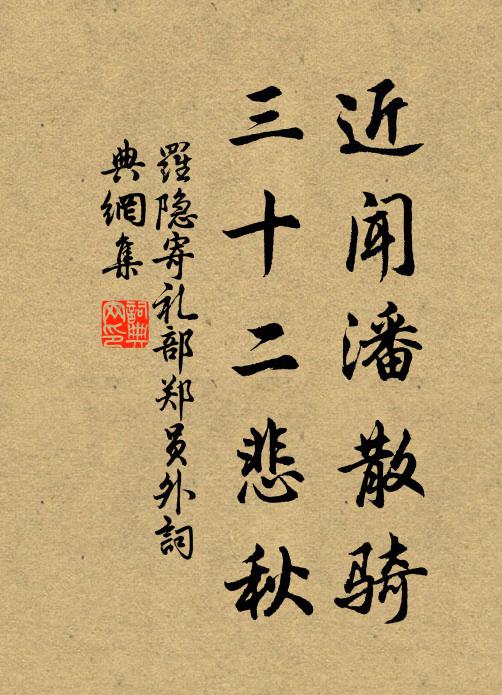 近闻潘散骑
三十二悲秋
羅隐寄礼部郑员外詞
典網集
詞典网印